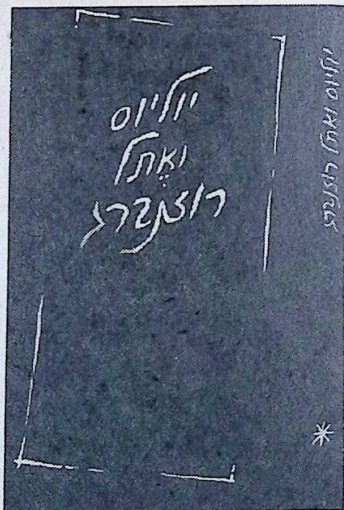 יוליוס
ואתל
רוזנברג
יוליוס ואתל רוזנברג